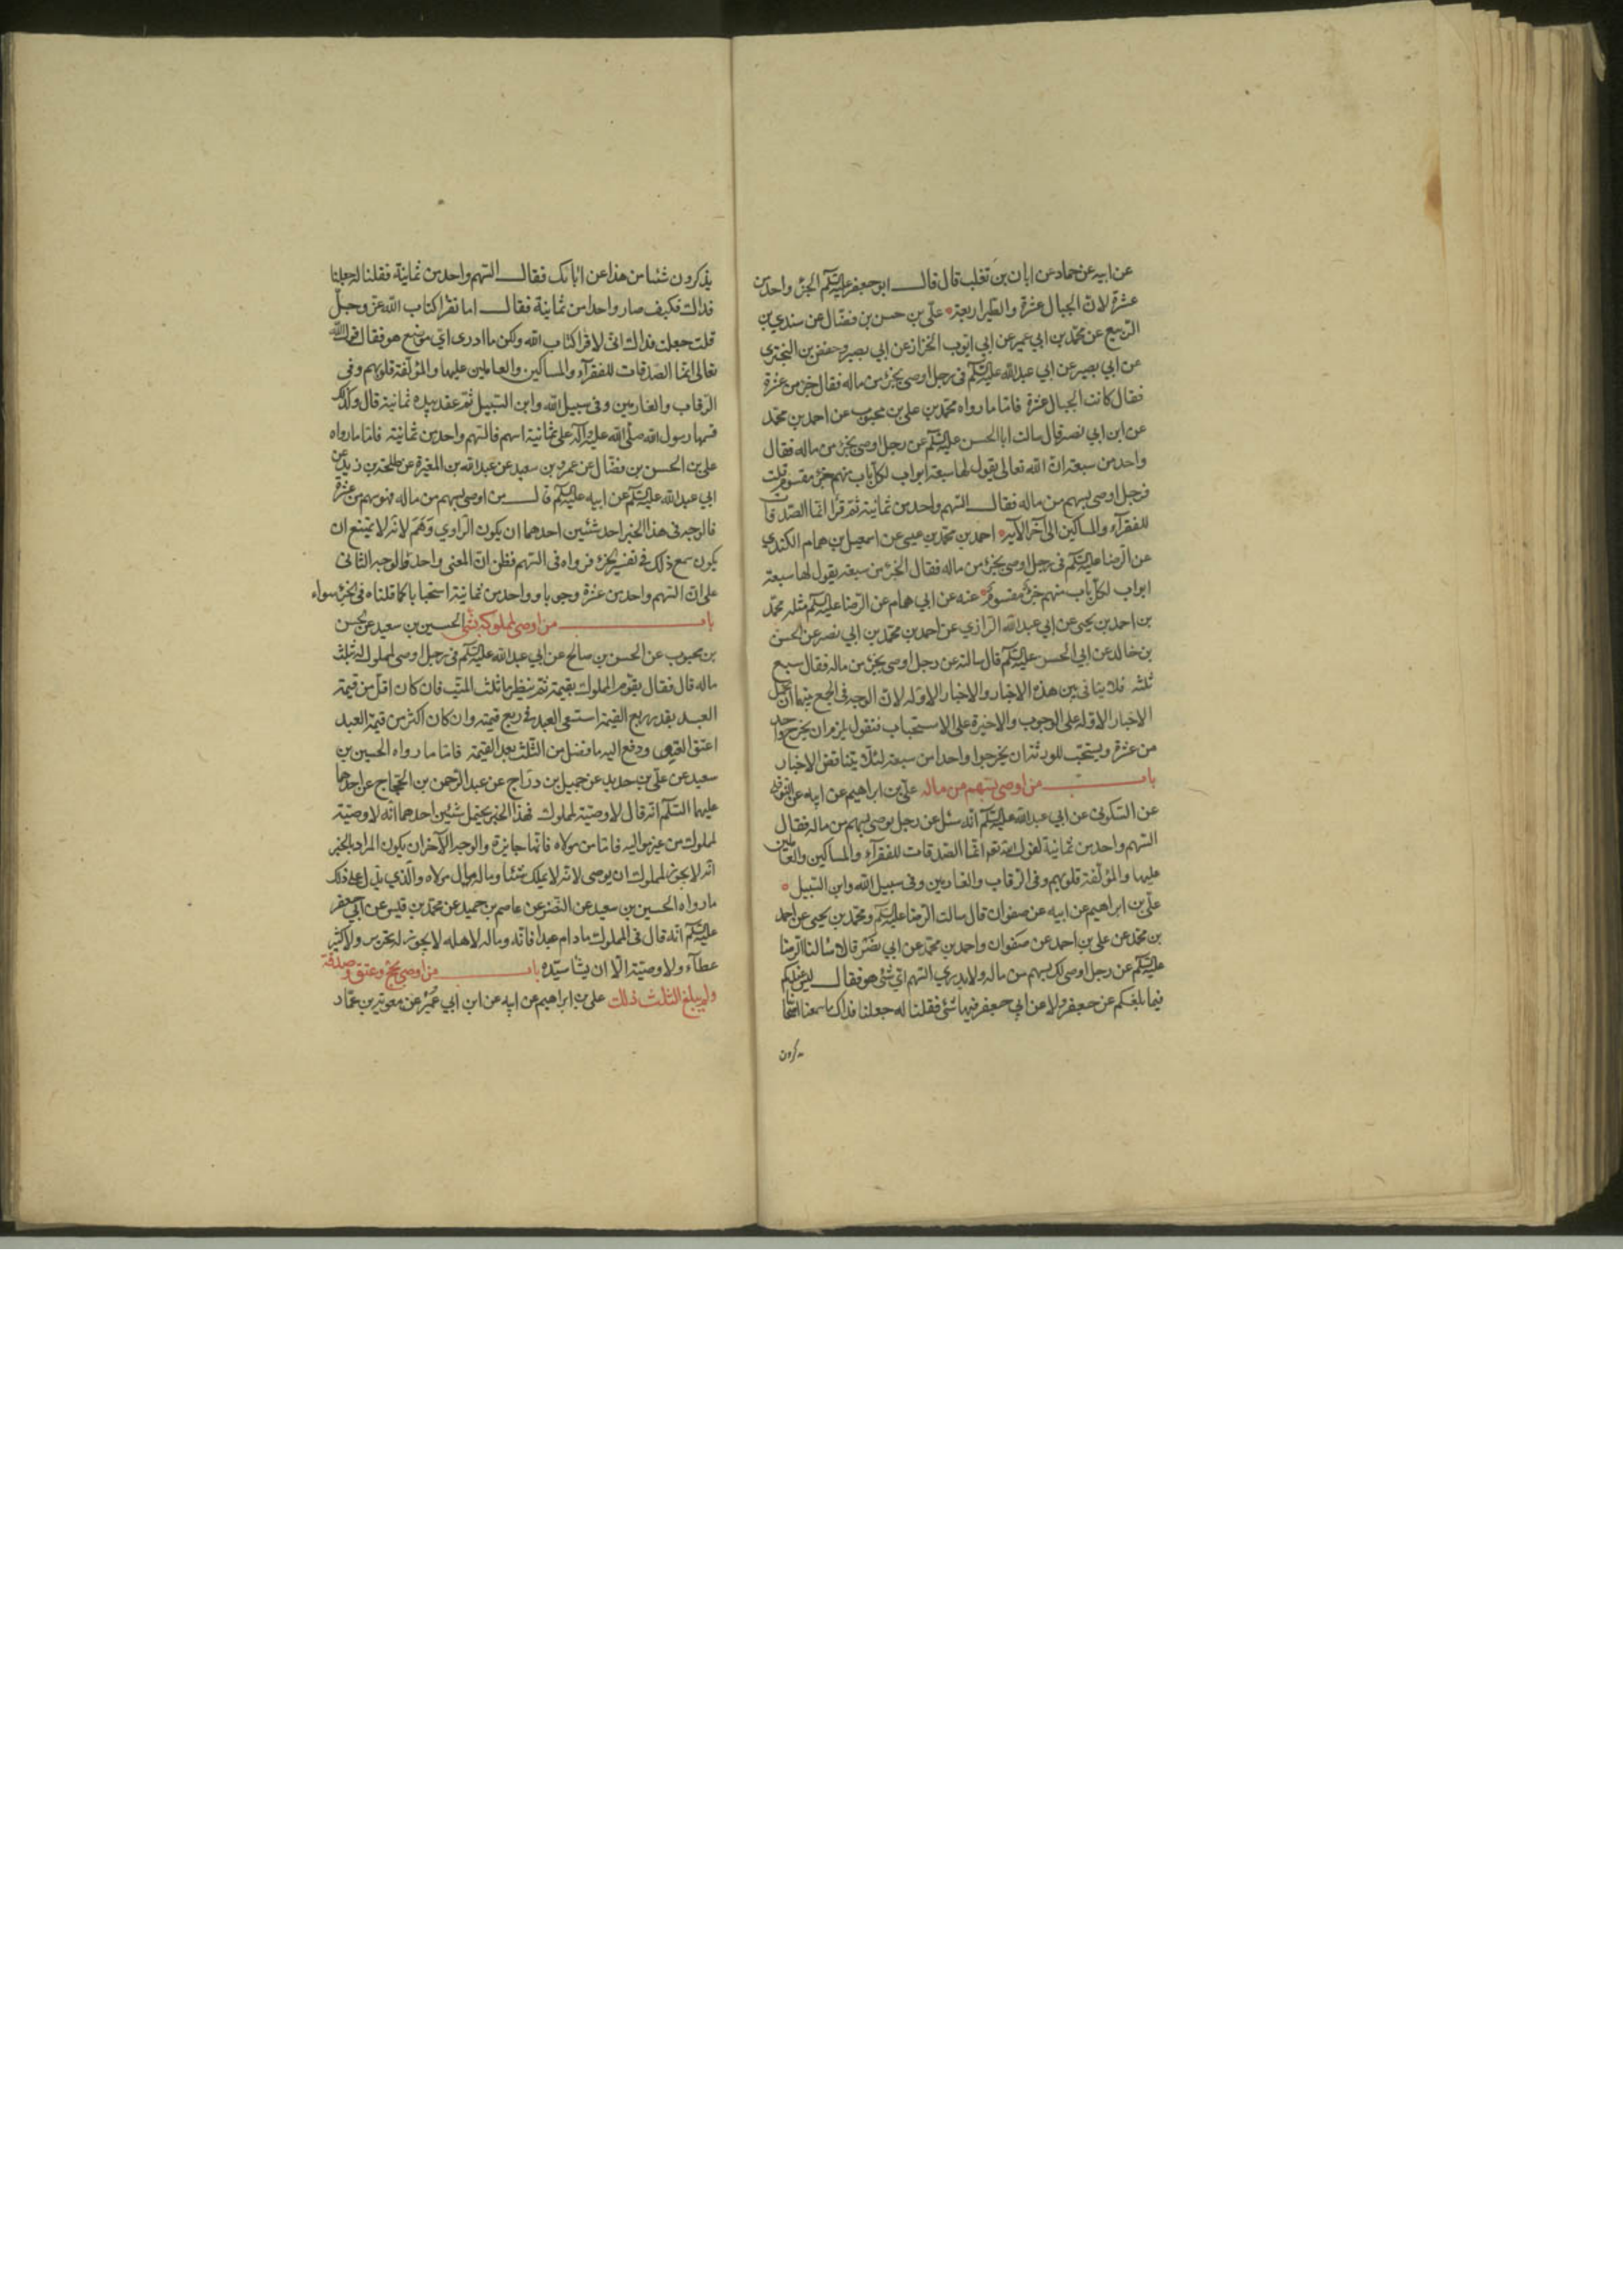 عن ابيه عن حماد عن ابان بن تغلب قال قال ابو جعفر عليه السلم الجزء واحد من
عشرة لان الجبال عشرة والطير اربعة علي بن حسن بن فضال عن سندي بن
الربيع عن محمد بن ابي عمير عن ابي ايوب الخزاز عن ابي بصير وحفص بن البختري
عن ابي بصير عن ابي عبد الله عليه السلم في رجل اوصى بجزء من ماله فقال جزء من عشرة
فقال كانت الجبال عشرة فاما ما رواه محمد بن علي بن محبوب عن احمد بن محمد
عن ابن ابي نصر قال سالت ابا الحسن عليه السلم عن رجل اوصى بجزء من ماله فقال
واحد من سبعة ان الله تعالى يقول لها سبعة ابواب لكل باب منهم جزء مقسوم قلت
فرجل اوصى بسهم من ماله فقال السهم واحد من ثمانية ثم قرا انما الصدقات
للفقرآء والمساكين الى آخر الآية احمد بن محمد بن عيسى عن اسمعيل بن همام الكندي
عن الرضا عليه السلم في رجل اوصى بجزء من ماله فقال الجزء من سبعة يقول لها سبعة
ابواب لكل باب منهم جزء مقسوم عنه عن ابي همام عن الرضا عليه السلم مثله محمد
بن احمد بن يحيى عن ابي عبد الله الرازي عن احمد بن محمد بن ابي نصر عن الحسن
بن خالد عن ابي الحسن عليه السلم قال سالته عن رجل اوصى بجزء من ماله فقال سبع
ثلثه فلا ينافي بين هذه الاخبار والاخبار الاوله لان الوجه في الجمع بينهما ان نحمل
الاخبار الاوله على الوجوب والاخيرة على الاستحباب فنقول يلزم ان يخرج واحد
من عشرة ويستحب للورثة ان يخرجوا واحدا من سبعة لئلا يتناقض الاخبار
باب من اوصى بسهم من ماله علي بن ابراهيم عن ابيه عن النوفلي
عن السكوني عن ابي عبد الله عليه السلم انه سئل عن رجل يوصي بسهم من ماله فقال
السهم واحد من ثمانية لقول الله تعه انما الصدقات للفقرآء والمساكين والعاملين
عليها والمؤلفة قلوبهم وفي الرقاب والغارمين وفي سبيل الله وابن السبيل
علي بن ابراهيم عن ابيه عن صفوان قال سالت الرضا عليه السلم ومحمد بن يحيى عن احمد
بن محمد عن علي بن احمد عن صفوان واحمد بن محمد عن ابي نصر قالا سالنا الرضا
عليه السلم عن رجل اوصى لك بسهم من ماله ولا يدرى السهم اي شئ هو فقال ليس عندكم
فيما بلغكم عن جعفر ولا عن ابي جعفر فيها شئ فقلنا له جعلنا فداك ما سمعنا اصحابنا
يذكرون
يذكرون شئا من هذا عن ابائك فقال السهم واحد من ثمانية فقلنا له جعلنا
فداك فكيف صار واحدا من ثمانية فقال اما تقرا كتاب الله عز وجل
قلت جعلت فداك اني لاقرا كتاب الله ولكن ما ادرى اي موضع هو فقال قول الله
تعالى انما الصدقات للفقرآء والمساكين والعاملين عليها والمؤلفة قلوبهم وفي
الرقاب والغارمين وفي سبيل الله وابن السبيل ثم عقد بيده ثمانية قال وكذلك
قسمها رسول الله صلى الله عليه وآله على ثمانية اسهم فالسهم واحد من ثمانية فاما ما رواه
علي بن الحسن بن فضال عن عمرو بن سعيد عن عبد الله بن المغيرة عن طلحة بن زيد عن
ابي عبد الله عليه السلم عن ابيه عليه السلم قال من اوصى بسهم من ماله فهو سهم من عشرة
فالوجه في هذا الخبر احد شئين احدهما ان يكون الراوي وهم لانه لا يمتنع ان
يكون سمع ذلك في تفسير الجزء فرواه في السهم فظن ان المعنى واحد والوجه الثاني
على ان السهم واحد من عشرة وجوبا وواحد من ثمانية استحبابا كما قلناه في الجزء سواء
باب من اوصى لمملوكه بشئ الحسين بن سعيد عن الحسن
بن محبوب عن الحسن بن صالح عن ابي عبد الله عليه السلم في رجل اوصى لمملوك له بثلث
ماله قال فقال يقوم المملوك بقيمة ثم ينظر ما ثلث الميت فان كان اقل من قيمة
العبد بقدر ربع القيمة استسعى العبد في ربع قيمته وان كان اكثر من قيمة العبد
اعتق العبد ودفع اليه ما فضل من الثلث بعد القيمة فاما ما رواه الحسين بن
سعيد عن علي بن حديد عن جميل بن دراج عن عبد الرحمن بن الحجاج عن احدهما
عليهما السلم انه قال لا وصية لمملوك فهذا الخبر يحتمل شئين احدهما انه لا وصية
لمملوك من غير مواليه فاما من مولاه فانها جايزة والوجه الآخر ان يكون المراد بالخبر
انه لا يجوز لمملوك ان يوصى لانه لا يملك شئا وماله مال مولاه والذي يدل على ذلك
ما رواه الحسين بن سعيد عن النضر عن عاصم بن حميد عن محمد بن قيس عن ابي جعفر
عليه السلم انه قال في المملوك ما دام عبدا فانه وماله لاهله لا يجوز له تحرير ولا كثير
عطآء ولا وصية الا ان يشا سيده باب من اوصى بحج وعتق وصدقة
ولم يبلغ الثلث ذلك علي بن ابراهيم عن ابيه عن ابن ابي عمير عن معوية بن عمار